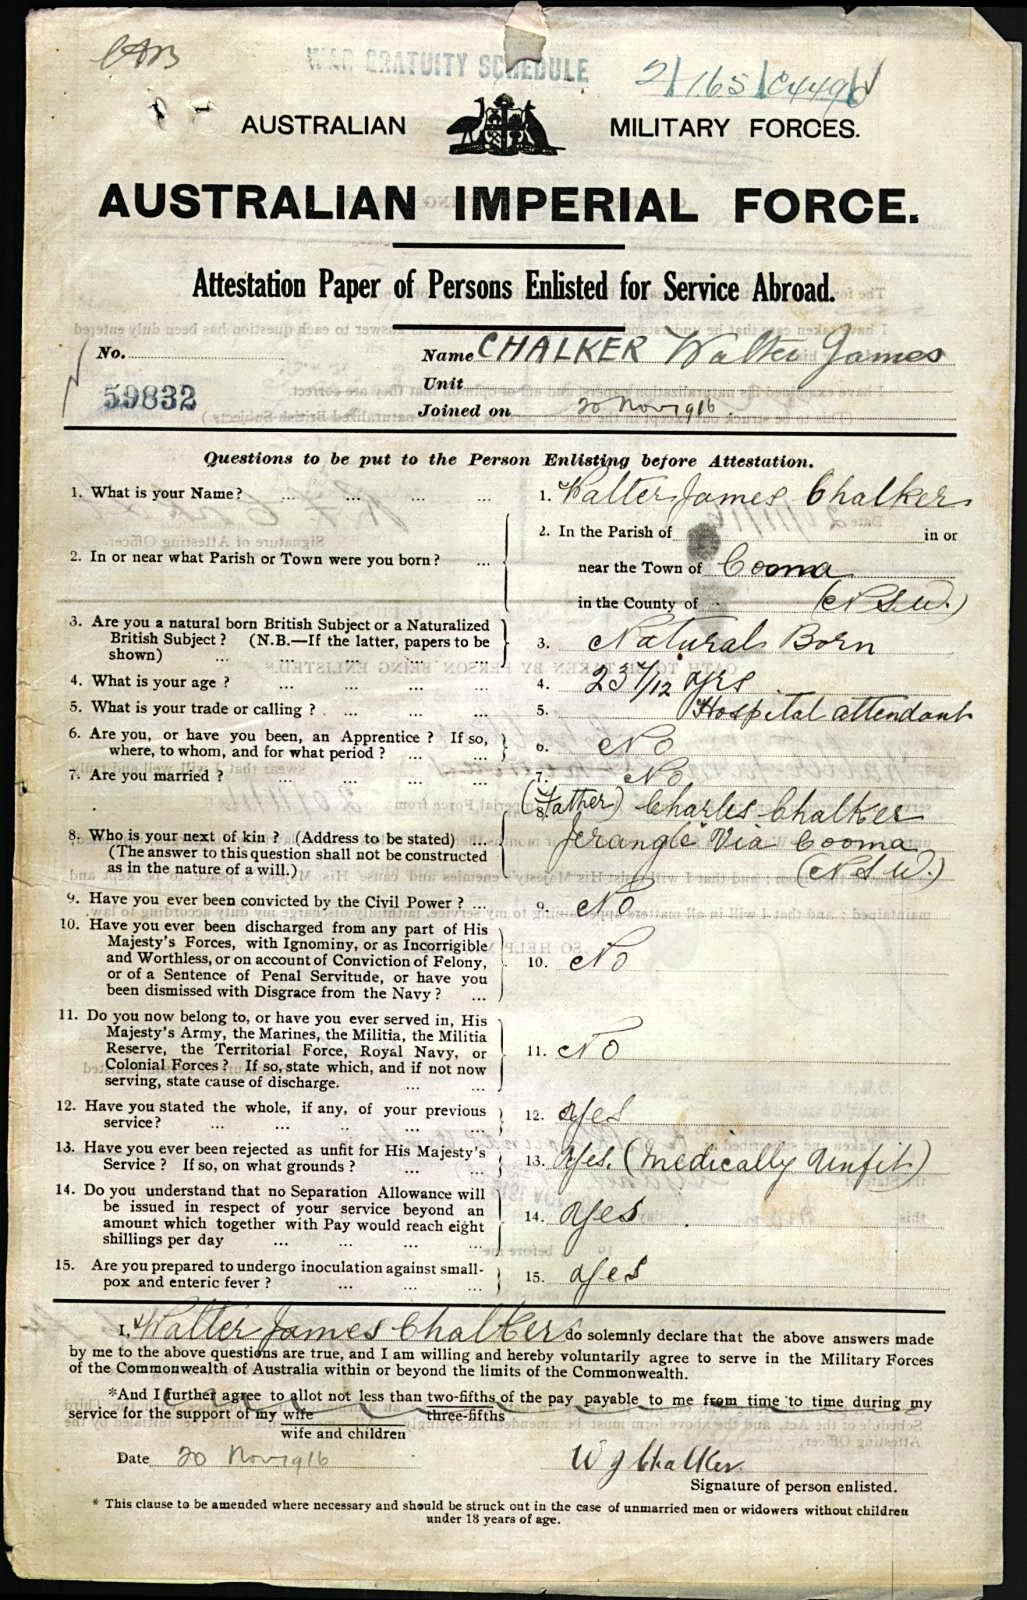 CAB
WAR GRATUITY SCHEDULE
AUSTRALIAN MILITARY FORCES.
AUSTRALIAN IMPERIAL FORCE.
Attestation Paper of Persons Enlisted for Service Abroad.
No. Name CHALKER Walter James
Unit
59832
Joined on 20 Nov 1916.
Questions to be put to the Person Enlisting before Attestation.
1. What is your Name? ... ... ... ... 1. Walter James Chalker
2. In the Parish of in or
2. In or near what Parish or Town were you born? ... near the Town of Cooma
in the County of (N.S.W.)
3. Are you a natural born British Subject or a Naturalized
British Subject? (N.B.—If the latter, papers to be 3. Natural Born
shown) ...
4. What is your age? ... ... ... ... 4. 23 7/12 yrs
5. What is your trade or calling? ... ... ... 5. Hospital attendant
6. Are you, or have you been, an Apprentice? If so,
where, to whom, and for what period? ... ... 6. No
7. Are you married? ... ... ... ... 7. No
(Father) Charles Chalker
8. Who is your next of kin? (Address to be stated) ... 8. Jerangle Via Cooma
(The answer to this question shall not be constructed
as in the nature of a will.) (N.S.W.)
9. Have you ever been convicted by the Civil Power? ... 9. No
10. Have you ever been discharged from any part of His
Majesty's Forces, with Ignominy, or as Incorrigible
and Worthless, or on account of Conviction of Felony, 10. No
or of a Sentence of Penal Servitude, or have you
been dismissed with Disgrace from the Navy? ...
11. Do you now belong to, or have you ever served in, His
Majesty's Army, the Marines, the Militia, the Militia
Reserve, the Territorial Force, Royal Navy, or 11. No
Colonial Forces? If so, state which, and if not now
serving, state cause of discharge. ... ...
12. Have you stated the whole, if any, of your previous
service? ... ... ... ... ... 12. Yes
13. Have you ever been rejected as unfit for His Majesty's
Service? If so, on what grounds? ... ... 13. Yes. (medically unfit)
14. Do you understand that no Separation Allowance will
be issued in respect of your service beyond an
amount which together with Pay would reach eight 14. Yes
shillings per day ... ... ... ...
15. Are you prepared to undergo inoculation against small-
pox and enteric fever? ... ... ... 15. Yes
I, Walter James Chalker do solemnly declare that the above answers made
by me to the above questions are true, and I am willing and hereby voluntarily agree to serve in the Military Forces
of the Commonwealth of Australia within or beyond the limits of the Commonwealth.
*And I further agree to allot not less than two-fifths of the pay payable to me from time to time during my
three-fifths
service for the support of my wife
wife and children
Date 20 Nov 1916 W J Chalker
Signature of person enlisted.
* This clause to be amended where necessary and should be struck out in the case of unmarried men or widowers without children
under 18 years of age.